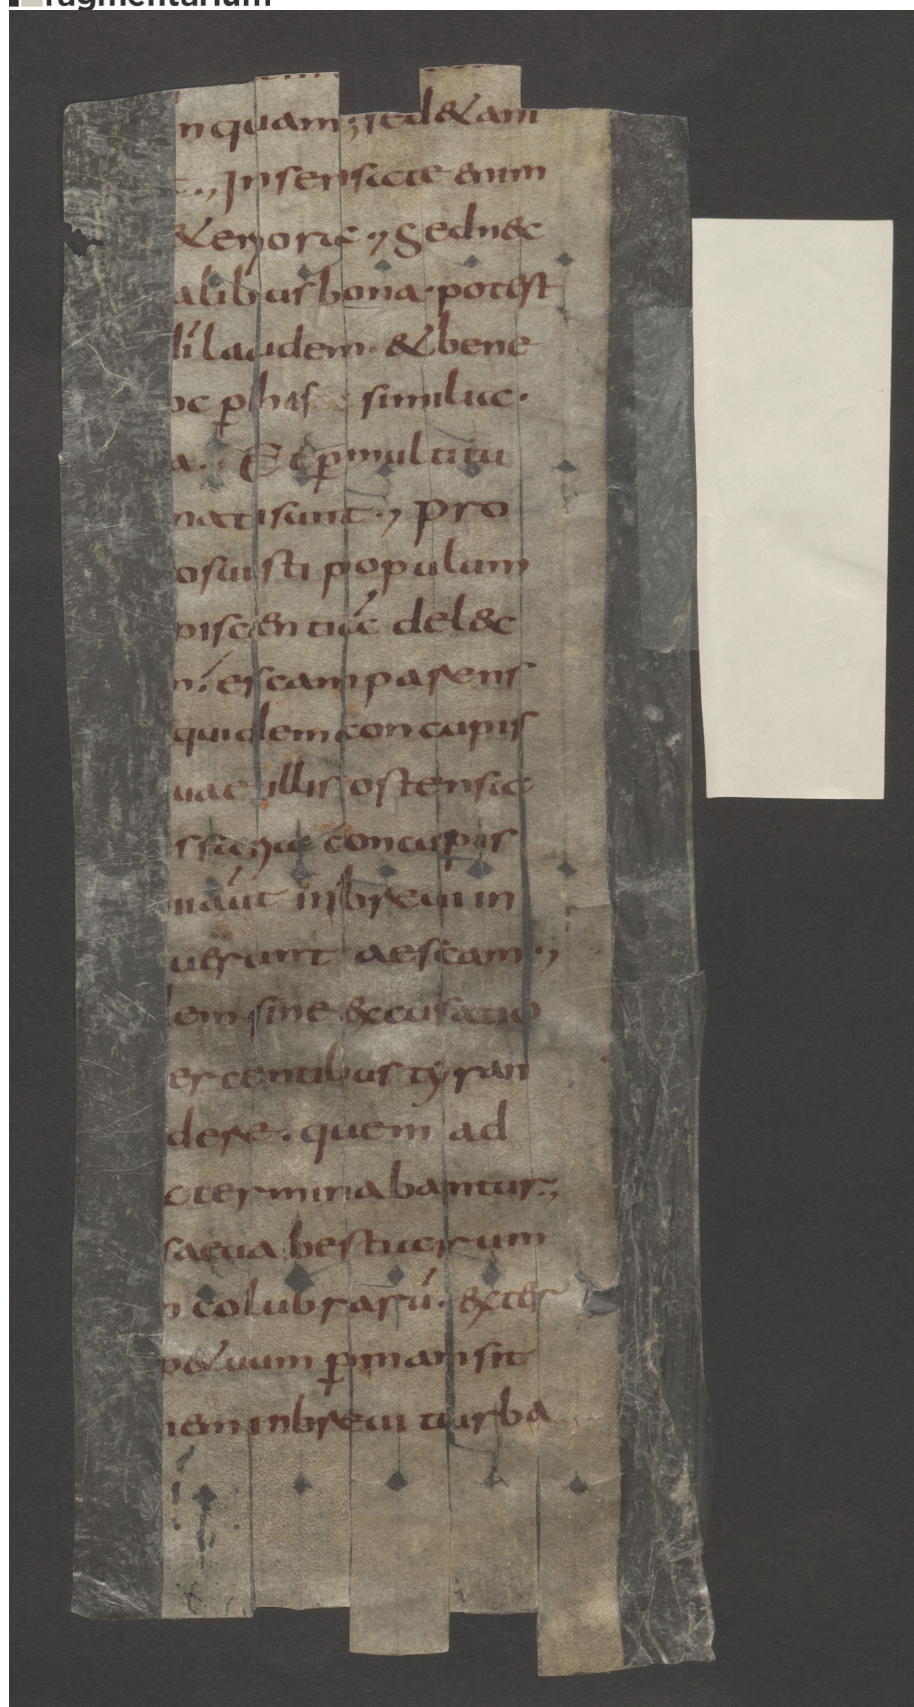 Fragmentarium
nquam; sed & ani
t., Insensata enim
& eriora ., Sed nec
alibus bona · potest
di laudem · & bene
ec p has similia ·
a · Et p multitu
nati sunt ., pro
osuisti populum
piscentiae delec
n; escam parens
quidem concupis
uae illis ostensa
ssaria concupis
n aut in breui in
uerunt aescam .,
em sine excusatio
ercentibus tyran
dere · quem ad
oterminabantur .,
saeua bestiarum
n colubraru · exter
p&uum pmansit
nem in breui turba